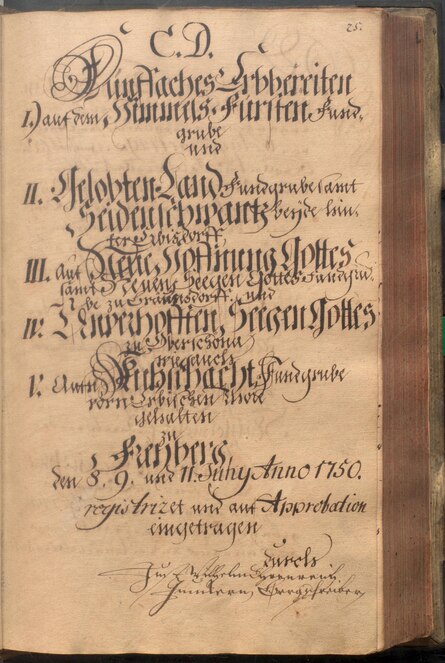 25.
C. D.
Fünffaches Erbbereiten
I.) auf dem Himmels-Fürsten Fund-
grube
und
II. Gelobten-Land Fundgrube samt
Seidenschwantz beyde hin-
ter Erbisdorff
III. auf Neue Hoffnung Gottes
samt Neuen Seegen Gottes Fundgru-
be zu Braunsdorff. und
IV. Unverhofften Seegen Gottes
zu Oberschöna
wie auch
V. Kuhschacht Fundgrube
vorn Erbischen Thore
gehalten
zu
Freyberg
den 8. 9. und 11. July Anno 1750.
registriret und auf Approbation
eingetragen
durch
Bergschreiber